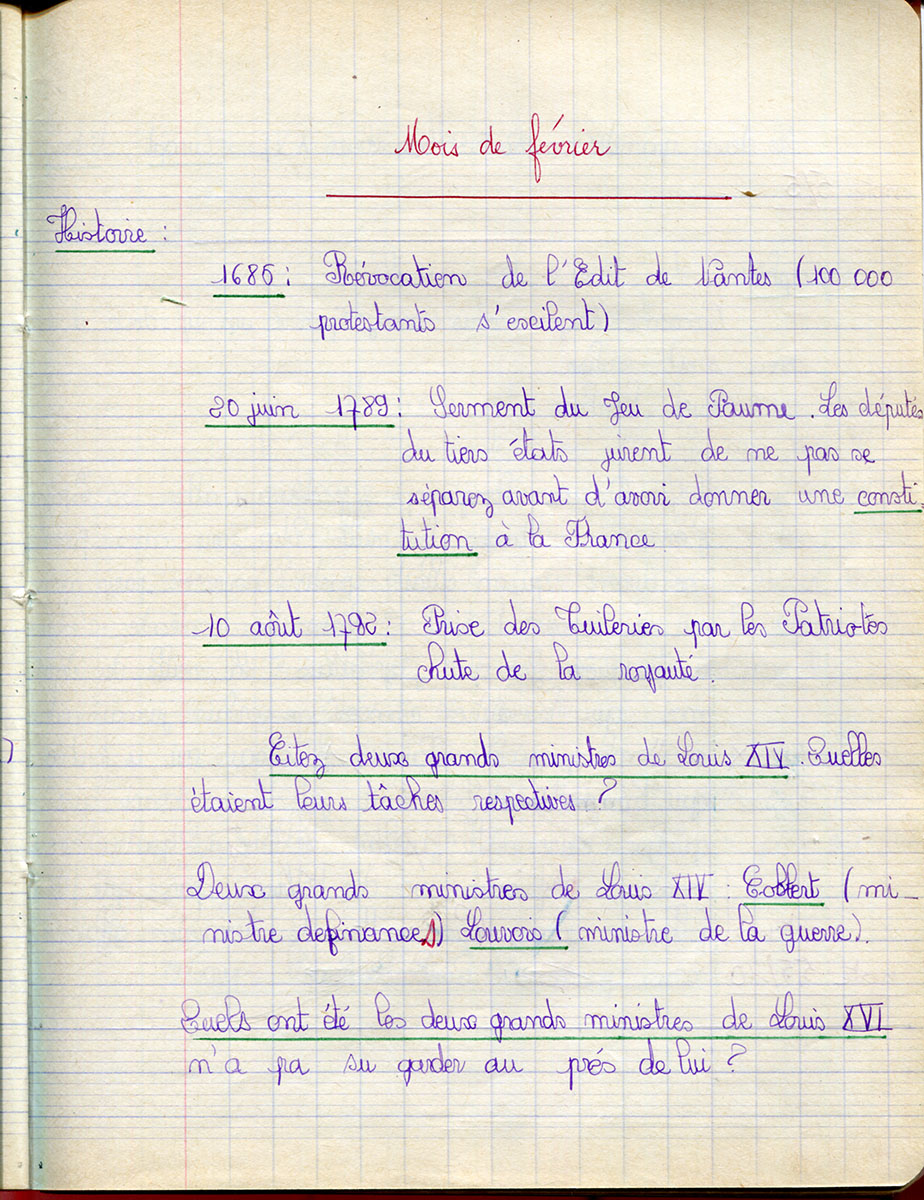 Mois de février
Histoire :
1685 : Révocation de l'Edit de Nantes (100 000
protestants s'excilent)
20 juin 1789 : Serment du Jeu de Paume. Les députés
du tiers états jurent de ne pas se
séparez avant d'avoir donner une consti
tution à la France
10 août 1792 : Prise des Tuileries par les Patriotes
chute de la royauté.
Citez deux grands ministres de Louis XIV. Quelles
étaient leurs tâches respectives ?
Deux grands ministres de Louis XIV : Colbert (mi_
nistre definances) Louvois (ministre de la guerre).
Quels ont été les deux grands ministres de Louis XVI
n'a pa su garder au prés de lui ?